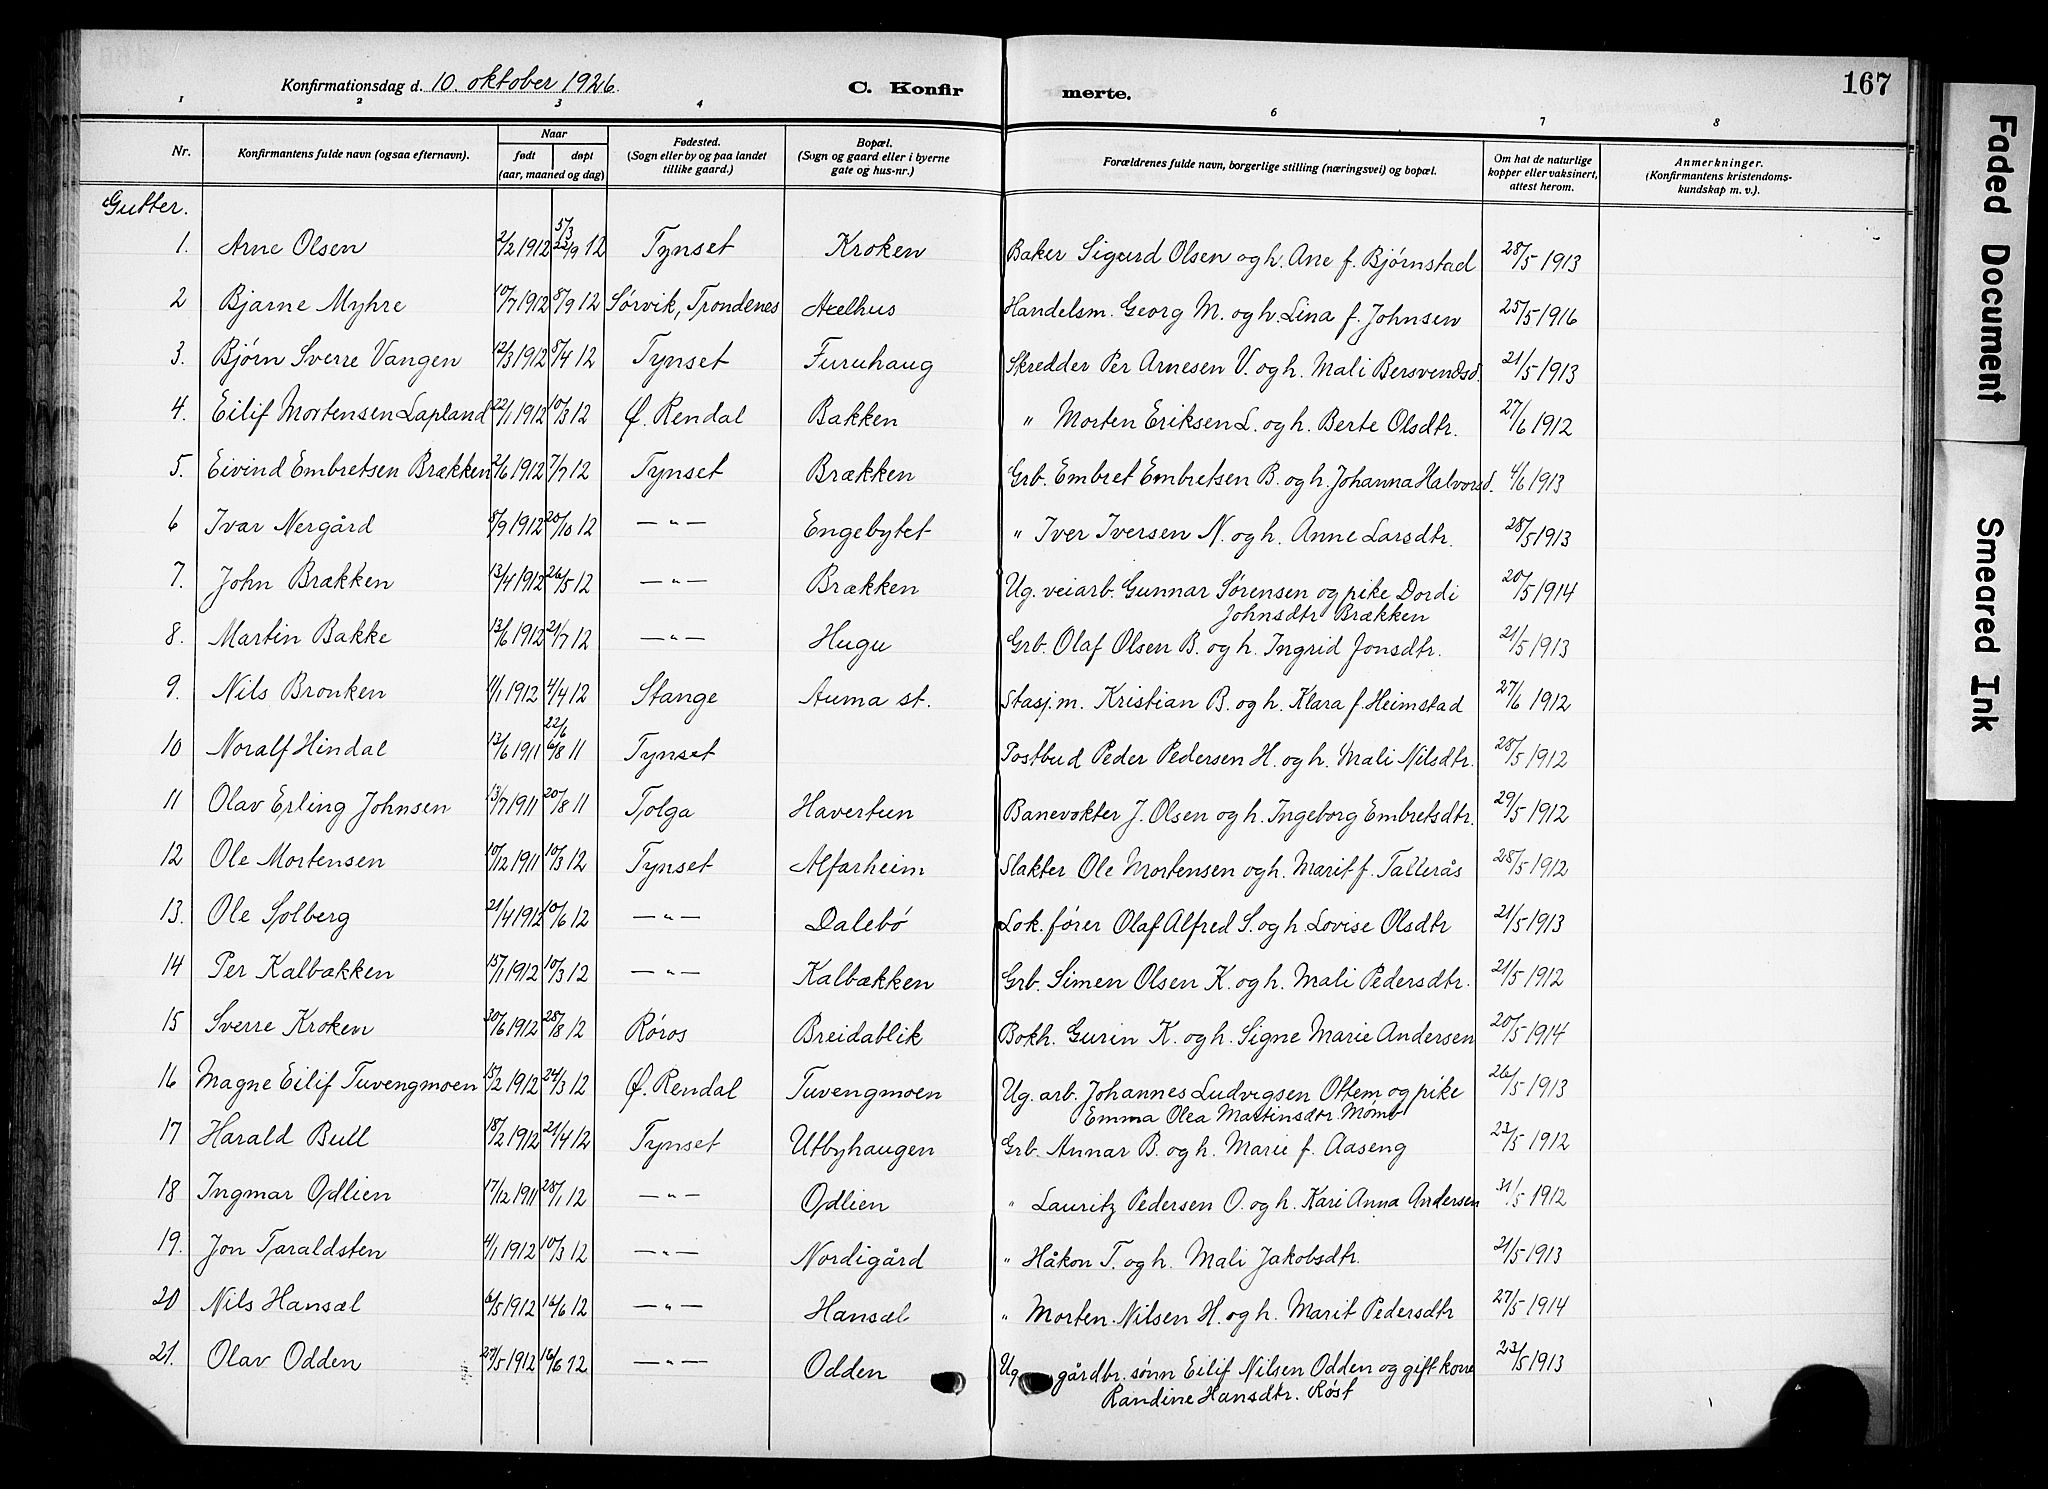 Konfirmationsdag d. 10. oktober 1926. C. Konfirmerte. 167
1 2 3 4 6 7 8
Nr. Konfirmantens fulde navn (ogsaa efternavn). Naar født døpt (aar, maaned og dag) Fødested. (Sogn eller by og paa landet tillike gaard.) Bopæl. (Sogn og gaard eller i byerne gate og hus-nr.) Forældrenes fulde navn, borgerlige stilling (næringsvei) og bopæl. Om hat de naturlige kopper eller vaksinert, attest herom. Anmerkninger. (Konfirmantens kristendoms-kundskap m. v.).
Gutter.
1. Arne Olsen 2/2 1912 5/3 22/9 12 Tynset Kroken Baker Sigurd Olsen og h. Ane f. Bjørnstad 28/5 1913
2 Bjarne Myhre 10/7 1912 8/9 12 Sørvik, Trondenes Axelhus Handelsm. Georg M. og h. Lina f. Johnsen 25/5 1916
3. Bjørn Sverre Vangen 12/3 1912 8/4 12 Tynset Furuhaug Skredder Per Arnesen V. og h. Mali Bersvendsd. 21/5 1913
4. Eilif Mortensen Lapland 22/1 1912 10/3 12 Ø. Rendal Bakken " Morten Eriksen L. og h. Berte Olsdtr. 27/6 1912
5. Eivind Embretsen Brækken 2/6 1912 7/7 12 Tynset Brækken Grb. Embret Embretsen B. og h. Johanna Halvorsd. 4/6 1913
6 Ivar Nergård 8/9 1912 20/10 12 — " — Engebytet " Iver Iversen N. og h. Anne Larsdtr. 28/5 1913
7. John Brækken 13/4 1912 26/5 12 — " — Brækken Ug. veiarb. Gunnar Sørensen og pike Dordi 20/5 1914
Johnsdtr Brækken
8. Martin Bakke 13/6 1912 21/7 12 — " — Hugu Grb. Olaf Olsen B. og h. Ingrid Jonsdtr. 21/5 1913
9. Nils Bronken 11/1 1912 4/4 12 Stange Auma st. Stasj.m. Kristian B. og h. Klara f. Heimstad 27/6 1912
10 Noralf Hindal 13/6 1911 22/6 6/8 11 Tynset Postbud Peder Pedersen H. og h. Mali Nilsdtr. 28/5 1912
11 Olav Erling Johnsen 13/7 1911 20/8 11 Tolga Havertun Banevokter J. Olsen og h. Ingeborg Embretsdtr. 29/5 1912
12 Ole Mortensen 10/12 1911 10/3 12 Tynset Alfarheim Slakter Ole Mortensen og h. Marit f. Tallerås 28/5 1912
13. Ole Solberg 21/4 1912 10/6 12 — " — Dalebö Lok. fører Olaf Alfred S. og h. Lovise Olsdtr 21/5 1913
14 Per Kalbækken 15/1 1912 10/3 12 — " — Kalbækken Grb. Simen Olsen K. og h. Mali Pedersdtr. 21/5 1912
15 Sverre Kroken 20/6 1912 28/8 12 Røros Breidablik Bokh. Gurin K. og h. Signe Marie Andersen 20/5 1914
16 Magne Eilif Tuvengmoen 15/2 1912 24/3 12 Ø. Rendal Tuvengmoen Ug. arb. Johannes Ludvigsen Ottem og pike 26/5 1913
Emma Olea Martinsdtr. Mømb
17 Harald Bull 18/2 1912 21/4 12 Tynset Utbyhaugen Grb. Annar B. og h. Marie f. Aaseng 22/5 1912
18 Ingmar Odlien 17/12 1911 28/1 12 — " — Odlien " Lauritz Pedersen O. og h. Kari Anna Andersen 31/5 1912
19. Jon Taraldsten 4/1 1912 10/3 12 — " — Nordigård " Håkon T. og h. Mali Jakobsdtr. 21/5 1913
20 Nils Hansæl 6/5 1912 16/6 12 — " — Hansæl " Morten Nilsen H. og h. Marit Pedersdtr 27/5 1914
21. Olav Odden 27/5 1912 16/6 12 — " — Odden Ug gårdbr. sønn Eilif Nilsen Odden og gift kone 23/5 1913
Randine Hansdtr. Røst
Faded Document
Smeared Ink